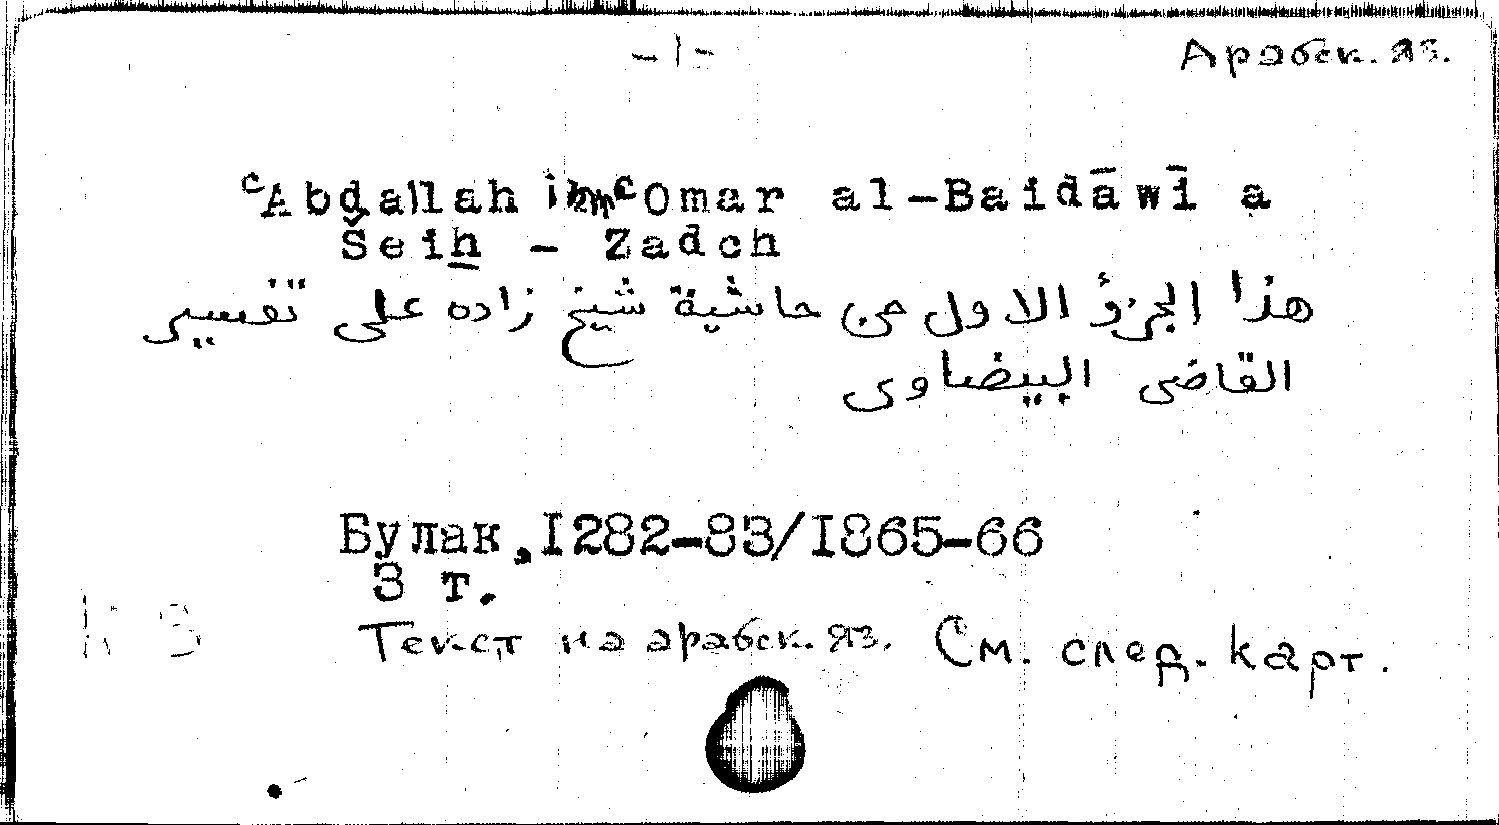 -1-
Арабск. яз.
ᶜAbdallah ibn ᶜOmar al-Baidāwī a
Šeiẖ - Zadeh
هذا الجزؤ الاول من حاشية شيخ زاده على تفسير
القاضى البيضاوى
Булак, 1282-83/1865-66
3 т.
Текст на арабск. яз. См. след. карт.